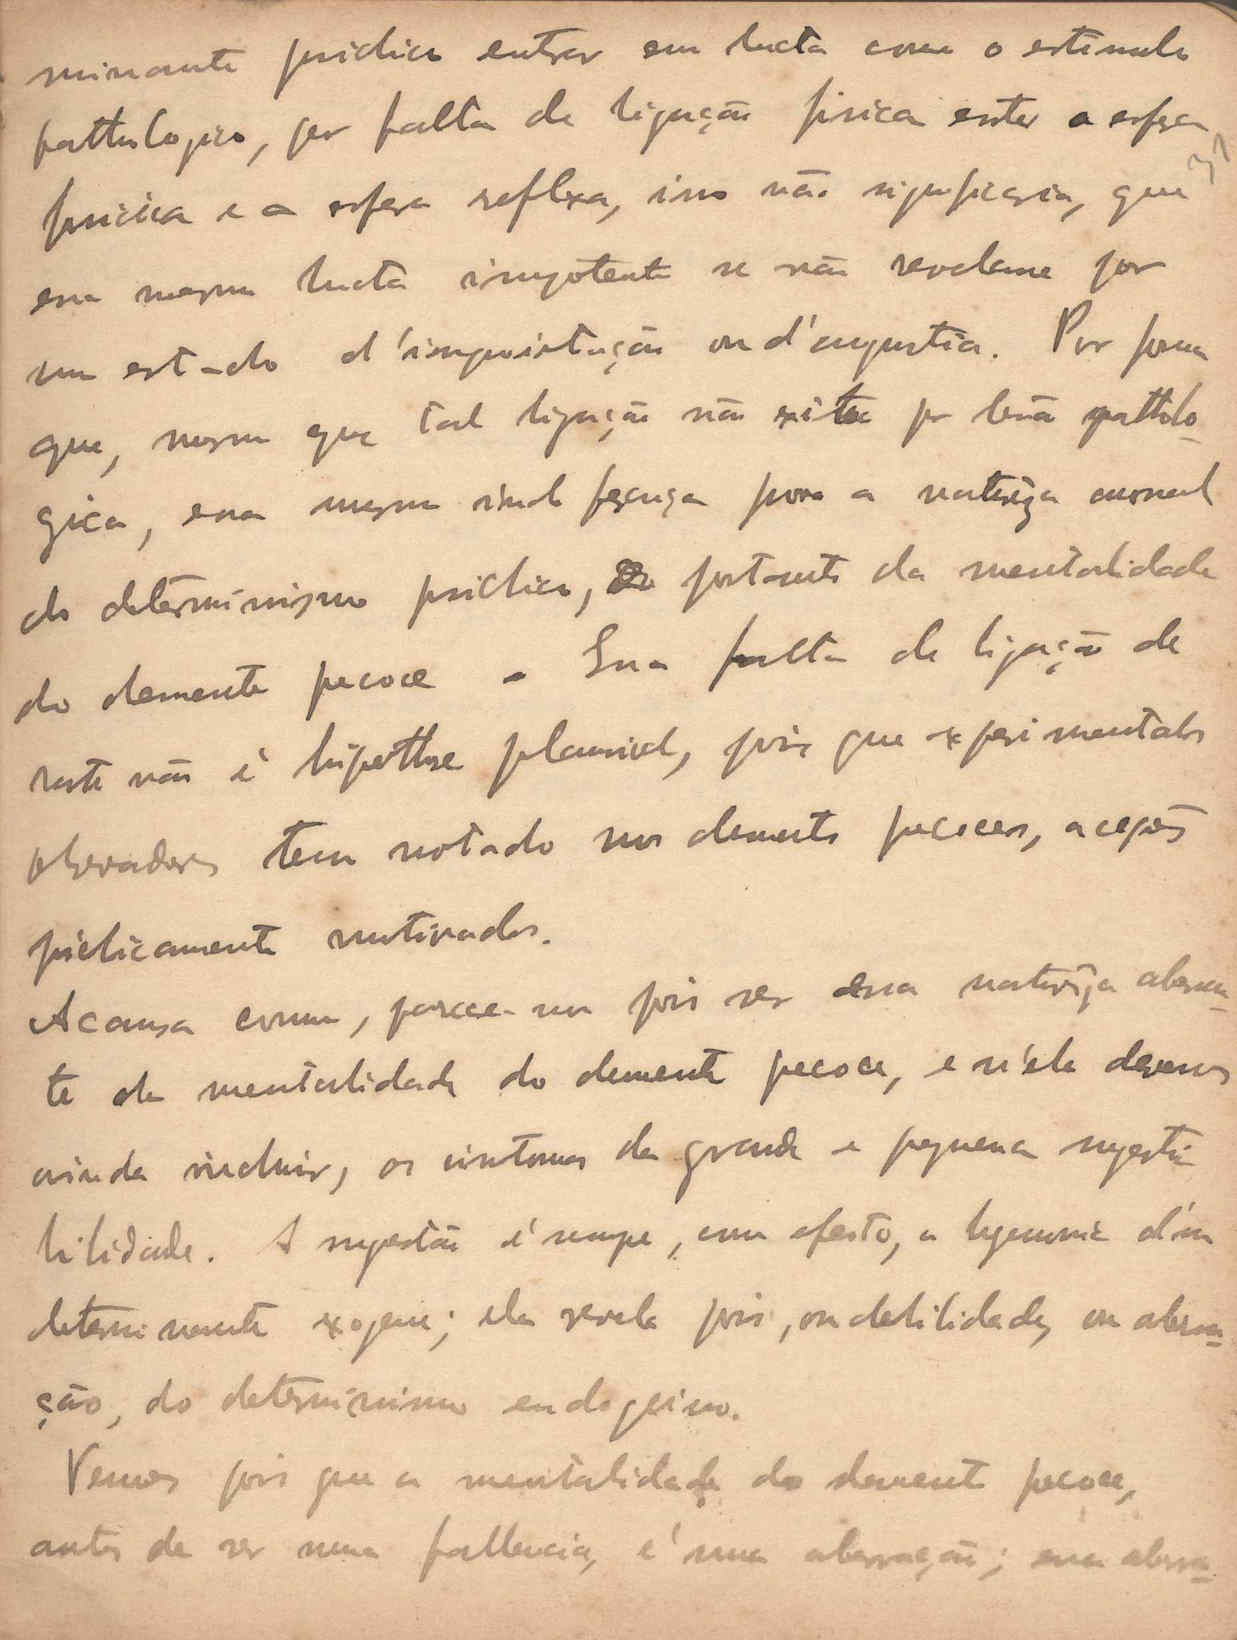 minante psichico entrar em lucta com o estimulo
pathologico, por falta de ligação fisica entre a esfera
psichica e a esfera reflexa, isso não significaria, que
essa mesma lucta impotente se não revelasse por
um estado d'inquietação ou d'angustia. Por forma
que, mesmo que tal ligação não exista por lesão patholo-
gica, essa mesma para a natureza anormal
do determinismo psichico, portanto da mentalidade
do demente precoce. Essa falta de ligação de
resto não é hipothese plausivel, pois que experimentados
observadores tem notado nos dementes precoces, acções
psichicamente motivadas.
A causa comum, parece-nos pois ser essa natureza aberran-
te da mentalidade do demente precoce, e n'ela devemos
ainda incluir, os sintomas da grande e pequena sugesti-
bilidade. A sugestão é sempre, com efeito, a hegemonia d'um
determinante exogeno; ela revela pois, ou debilidade, ou aberra-
ção, do determinismo endogeino.
Vemos pois que a mentalidade do demente precoce,
antes de ser uma fallencia, é uma aberração; essa aberra-